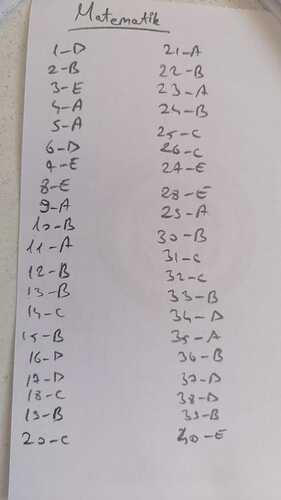 Matematik
1-D
2-B
3-E
4-A
5-A
6-D
7-E
8-E
9-A
10-B
11-A
12-B
13-B
14-C
15-B
16-D
17-D
18-C
19-B
20-C
21-A
22-B
23-A
24-B
25-C
26-C
27-E
28-E
29-A
30-B
31-C
32-C
33-B
34-D
35-A
36-B
37-D
38-D
39-B
40-E